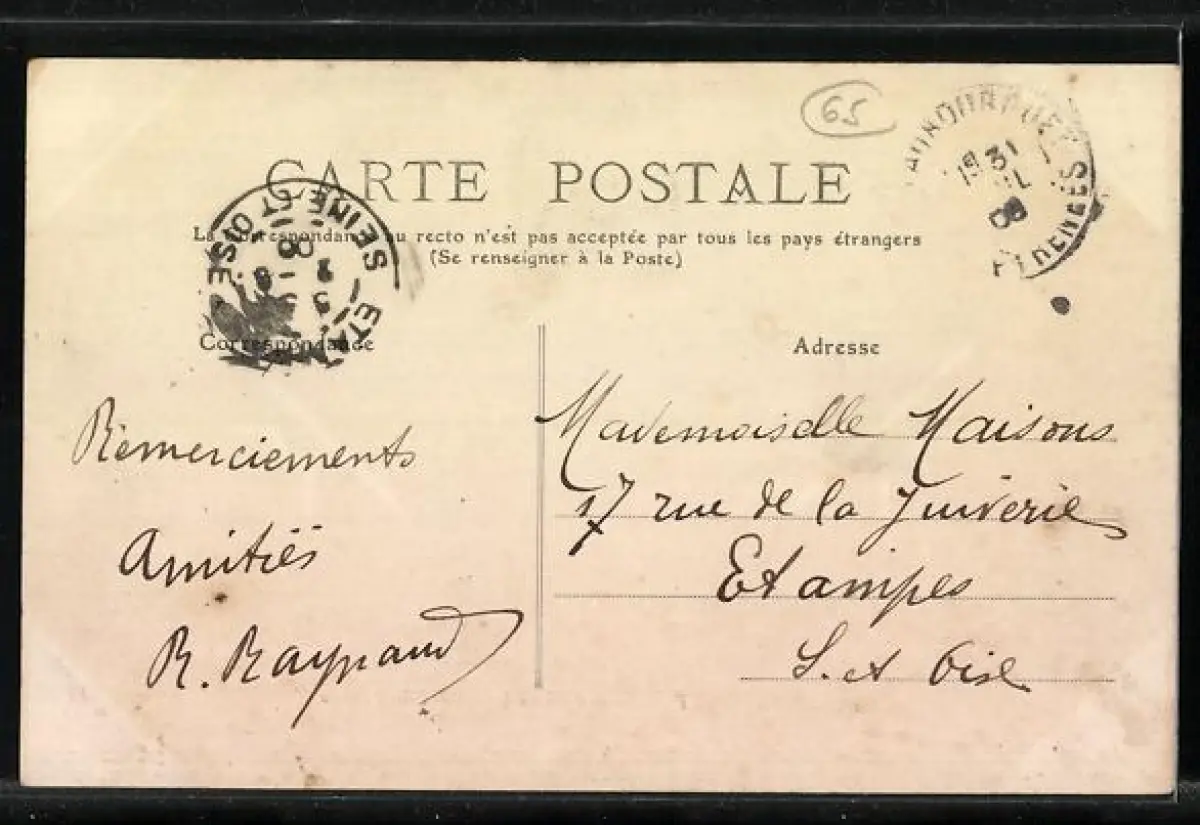 65
CARTE POSTALE
La Correspondance au recto n'est pas acceptée par tous les pays étrangers
(Se renseigner à la Poste)
SEINE ET OISE
31
08
PYRENEES
Correspondance
Remerciements
Amitiés
R. Raynaud
Adresse
Mademoiselle Maisons
17 rue de la Juiverie
Etampes
S. et Oise